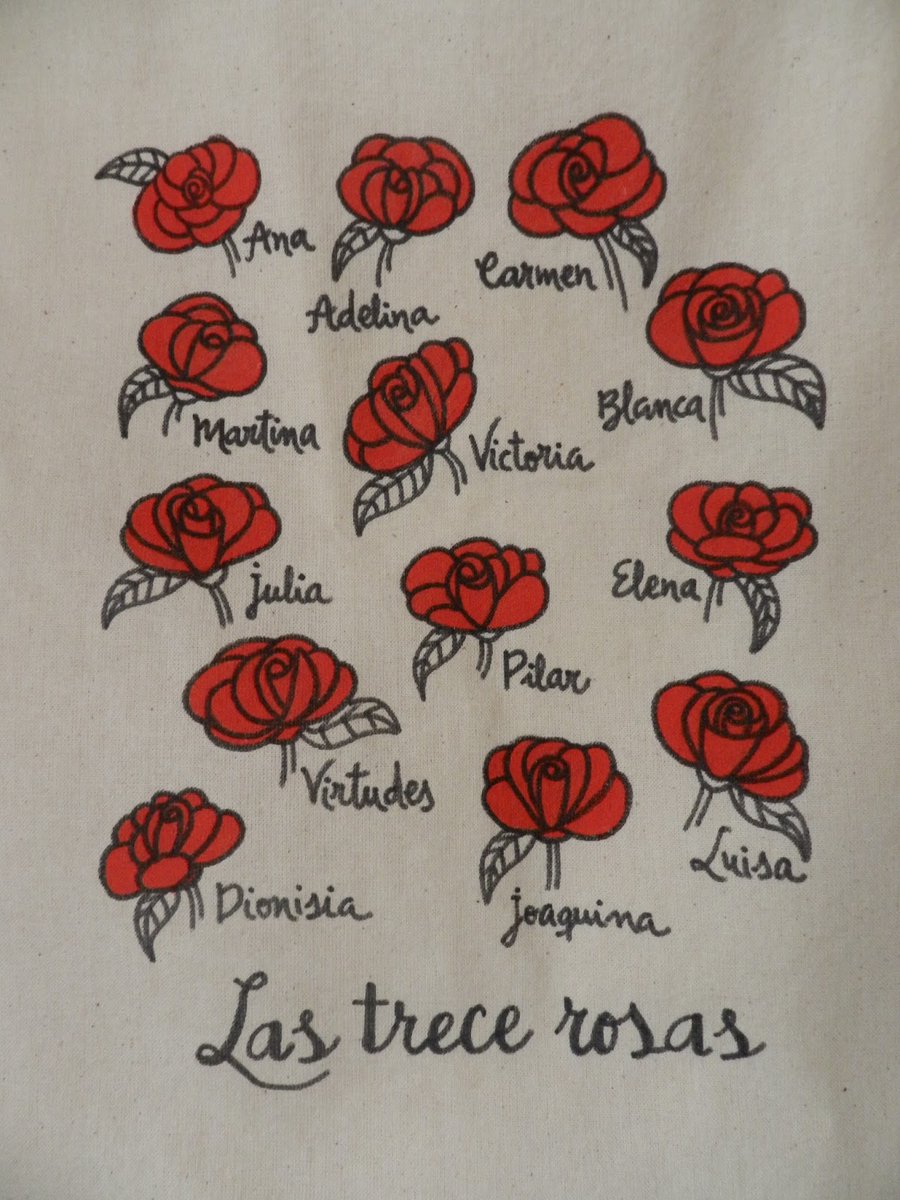 Ana
Adelina
Carmen
Martina
Victoria
Blanca
Julia
Pilar
Elena
Virtudes
Luisa
Dionisia
Joaquina
Las trece rosas